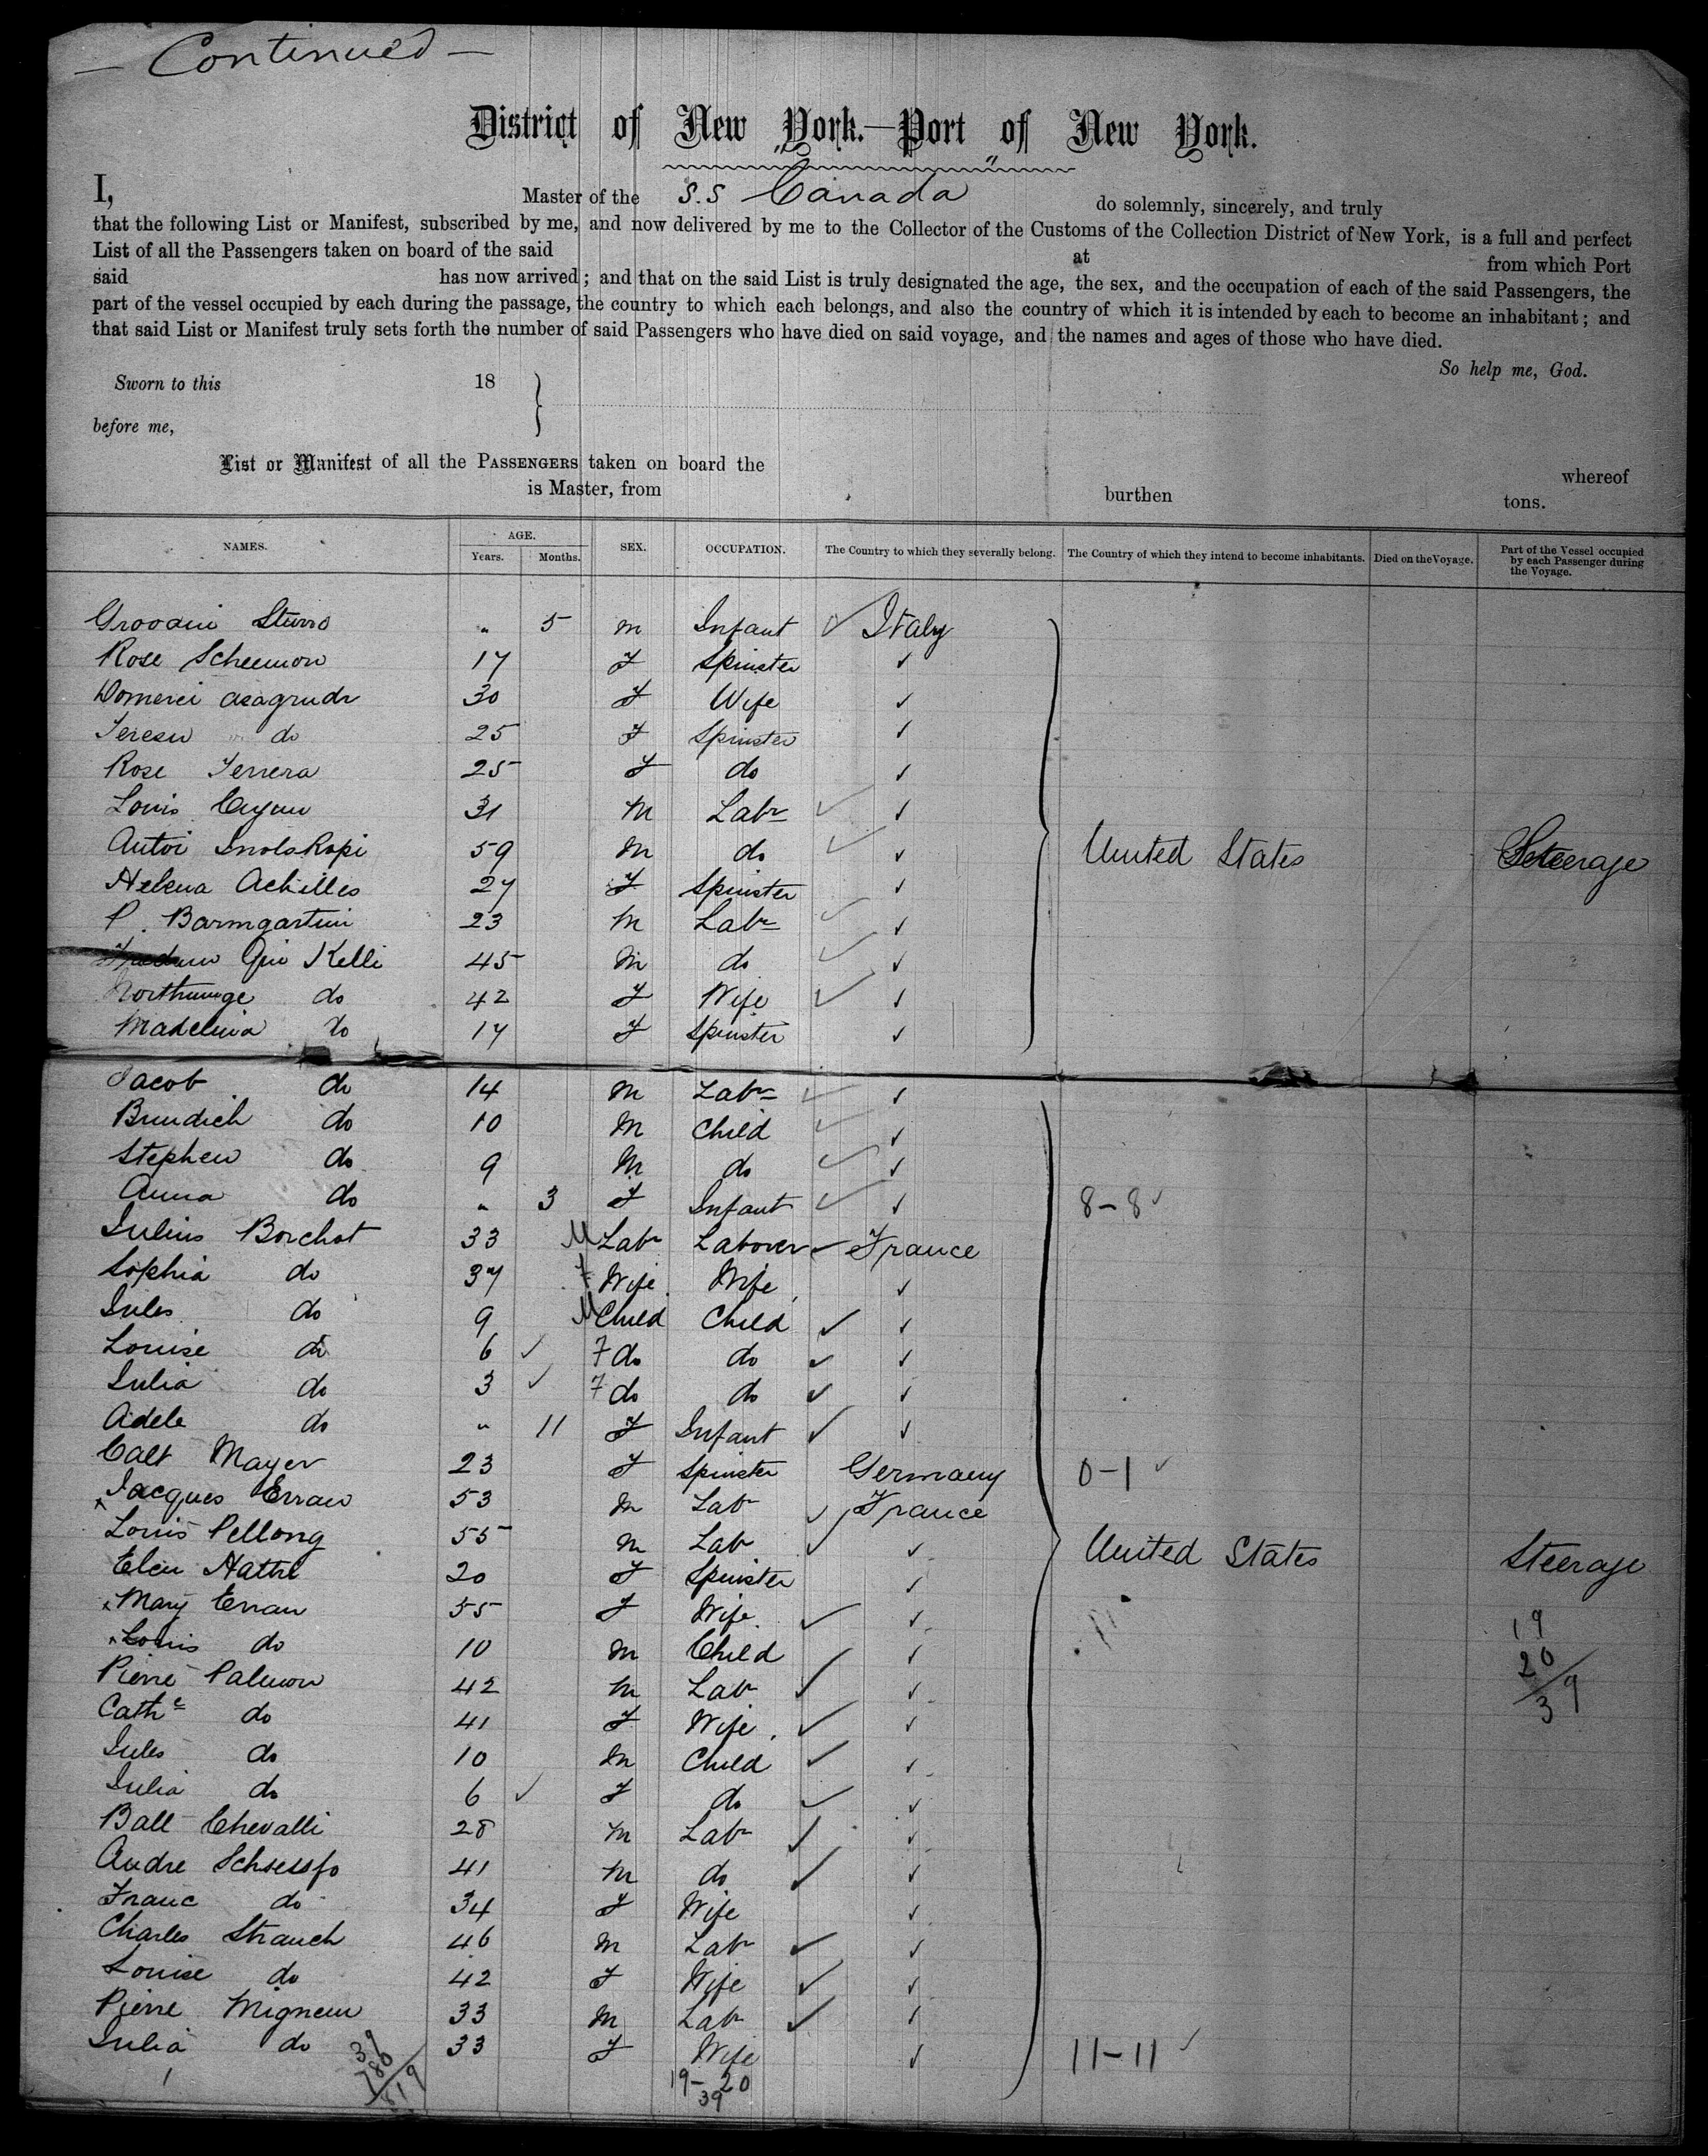 — Continued —
District of New York.—Port of New York.
I, Master of the S.S "Canada" do solemnly, sincerely, and truly
that the following List or Manifest, subscribed by me, and now delivered by me to the Collector of the Customs of the Collection District of New York, is a full and perfect
List of all the Passengers taken on board of the said at from which Port
said has now arrived; and that on the said List is truly designated the age, the sex, and the occupation of each of the said Passengers, the
part of the vessel occupied by each during the passage, the country to which each belongs, and also the country of which it is intended by each to become an inhabitant; and
that said List or Manifest truly sets forth the number of said Passengers who have died on said voyage, and the names and ages of those who have died.
So help me, God.
Sworn to this 18
before me,
List or Manifest of all the PASSENGERS taken on board the whereof
is Master, from burthen tons.
NAMES. AGE. Years. Months. SEX. OCCUPATION. The Country to which they severally belong. The Country of which they intend to become inhabitants. Died on the Voyage. Part of the Vessel occupied by each Passenger during the Voyage.
" 5 M Infant ✓ Italy
Rose 17 F Spinster ✓
30 F Wife ✓
do 25 F Spinster ✓
Rose 25 F do ✓
Louis 31 M Labr ✓ ✓
59 M do ✓ ✓ United States Steerage
Helena Achilles 27 F Spinster ✓
P. Barmgartini 23 M Labr ✓ ✓
Kelli 45 M do ✓ ✓
do 42 F Wife ✓ ✓
Madelina do 17 F Spinster ✓
Jacob do 14 M Labr ✓ ✓
Bundich do 10 M Child ✓ ✓
Stephen do 9 M do ✓ ✓
Anna do " 3 F Infant ✓ ✓ 8-8 ✓
Julius Borchot 33 M Labr Laborer ✓ France
Sophia do 37 F Wife Wife ✓
Jules do 9 M Child Child ✓ ✓
Louise do 6 ✓ F do do ✓ ✓
Julia do 3 ✓ F do do ✓ ✓
Adele do " 11 F Infant ✓ ✓
Mayer 23 F Spinster Germany 0-1 ✓
Jacques Erraw 53 M Lab ✓ France
Louis Pellong 55 M Lab ✓ ✓ United States Steerage
20 F Spinster ✓
Mary Erraw 55 F Wife ✓ ✓ 19
Louis do 10 M Child ✓ ✓ 20
Pierre Palmon 42 M Lab ✓ ✓ 39
Cathe do 41 F Wife ✓ ✓
Jules do 10 M Child ✓ ✓
Julia do 6 ✓ F do ✓ ✓
Ball Chevalli 28 M Labr ✓ ✓
Andre 41 M do ✓ ✓
Franc do 34 F Wife ✓
Charles Strauch 46 M Labr ✓ ✓
Louise do 42 F Wife ✓ ✓
Pierre Mignew 33 M Labr ✓ ✓
Julia do 33 F Wife ✓ 11-11 ✓
39
780
819
19-20
39